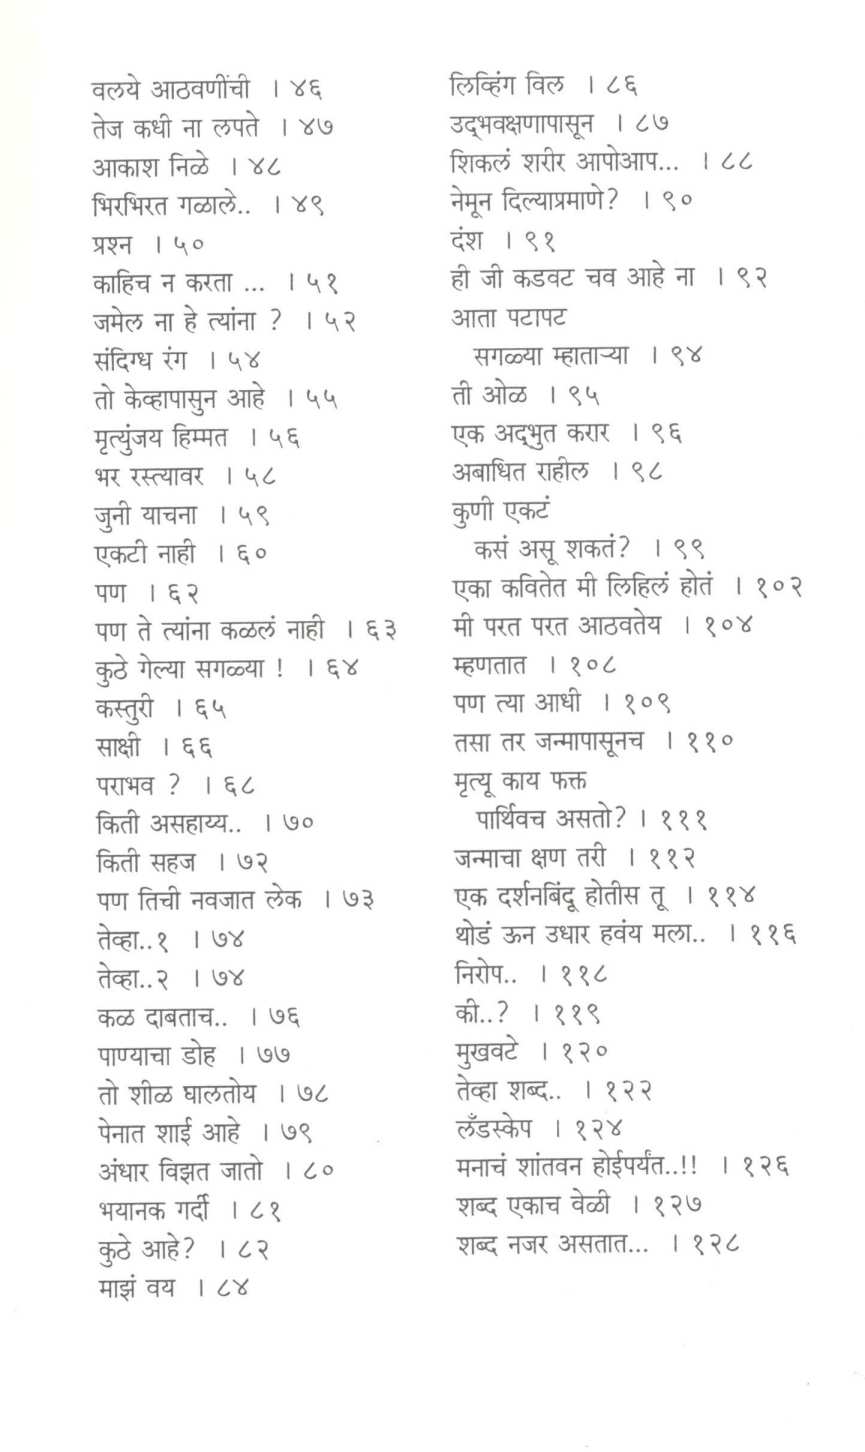 वलये आठवणींची । ४६
तेज कधी ना लपते । ४७
आकाश निळे । ४८
भिरभिरत गळाले.. । ४९
प्रश्न । ५०
काहिच न करता ... । ५१
जमेल ना हे त्यांना ? । ५२
संदिग्ध रंग । ५४
तो केव्हापासुन आहे । ५५
मृत्युंजय हिम्मत । ५६
भर रस्त्यावर । ५८
जुनी याचना । ५९
एकटी नाही । ६०
पण । ६२
पण ते त्यांना कळलं नाही । ६३
कुठे गेल्या सगळ्या ! । ६४
कस्तुरी । ६५
साक्षी । ६६
पराभव ? । ६८
किती असहाय्य.. । ७०
किती सहज । ७२
पण तिची नवजात लेक । ७३
तेव्हा..१ । ७४
तेव्हा..२ । ७४
कळ दाबताच.. । ७६
पाण्याचा डोह । ७७
तो शीळ घालतोय । ७८
पेनात शाई आहे । ७९
अंधार विझत जातो । ८०
भयानक गर्दी । ८१
कुठे आहे? । ८२
माझं वय । ८४
लिव्हिंग विल । ८६
उद्‌भवक्षणापासून । ८७
शिकलं शरीर आपोआप... । ८८
नेमून दिल्याप्रमाणे? । ९०
दंश । ९१
ही जी कडवट चव आहे ना । ९२
आता पटापट
सगळ्या म्हाताऱ्या । ९४
ती ओळ । ९५
एक अद्‌भुत करार । ९६
अबाधित राहील । ९८
कुणी एकटं
कसं असू शकतं? । ९९
एका कवितेत मी लिहिलं होतं । १०२
मी परत परत आठवतेय । १०४
म्हणतात । १०८
पण त्या आधी । १०९
तसा तर जन्मापासूनच । ११०
मृत्यू काय फक्त
पार्थिवच असतो? । १११
जन्माचा क्षण तरी । ११२
एक दर्शनबिंदू होतीस तू । ११४
थोडं ऊन उधार हवंय मला.. । ११६
निरोप.. । ११८
की..? । ११९
मुखवटे । १२०
तेव्हा शब्द.. । १२२
लँडस्केप । १२४
मनाचं शांतवन होईपर्यंत..!! । १२६
शब्द एकाच वेळी । १२७
शब्द नजर असतात... । १२८